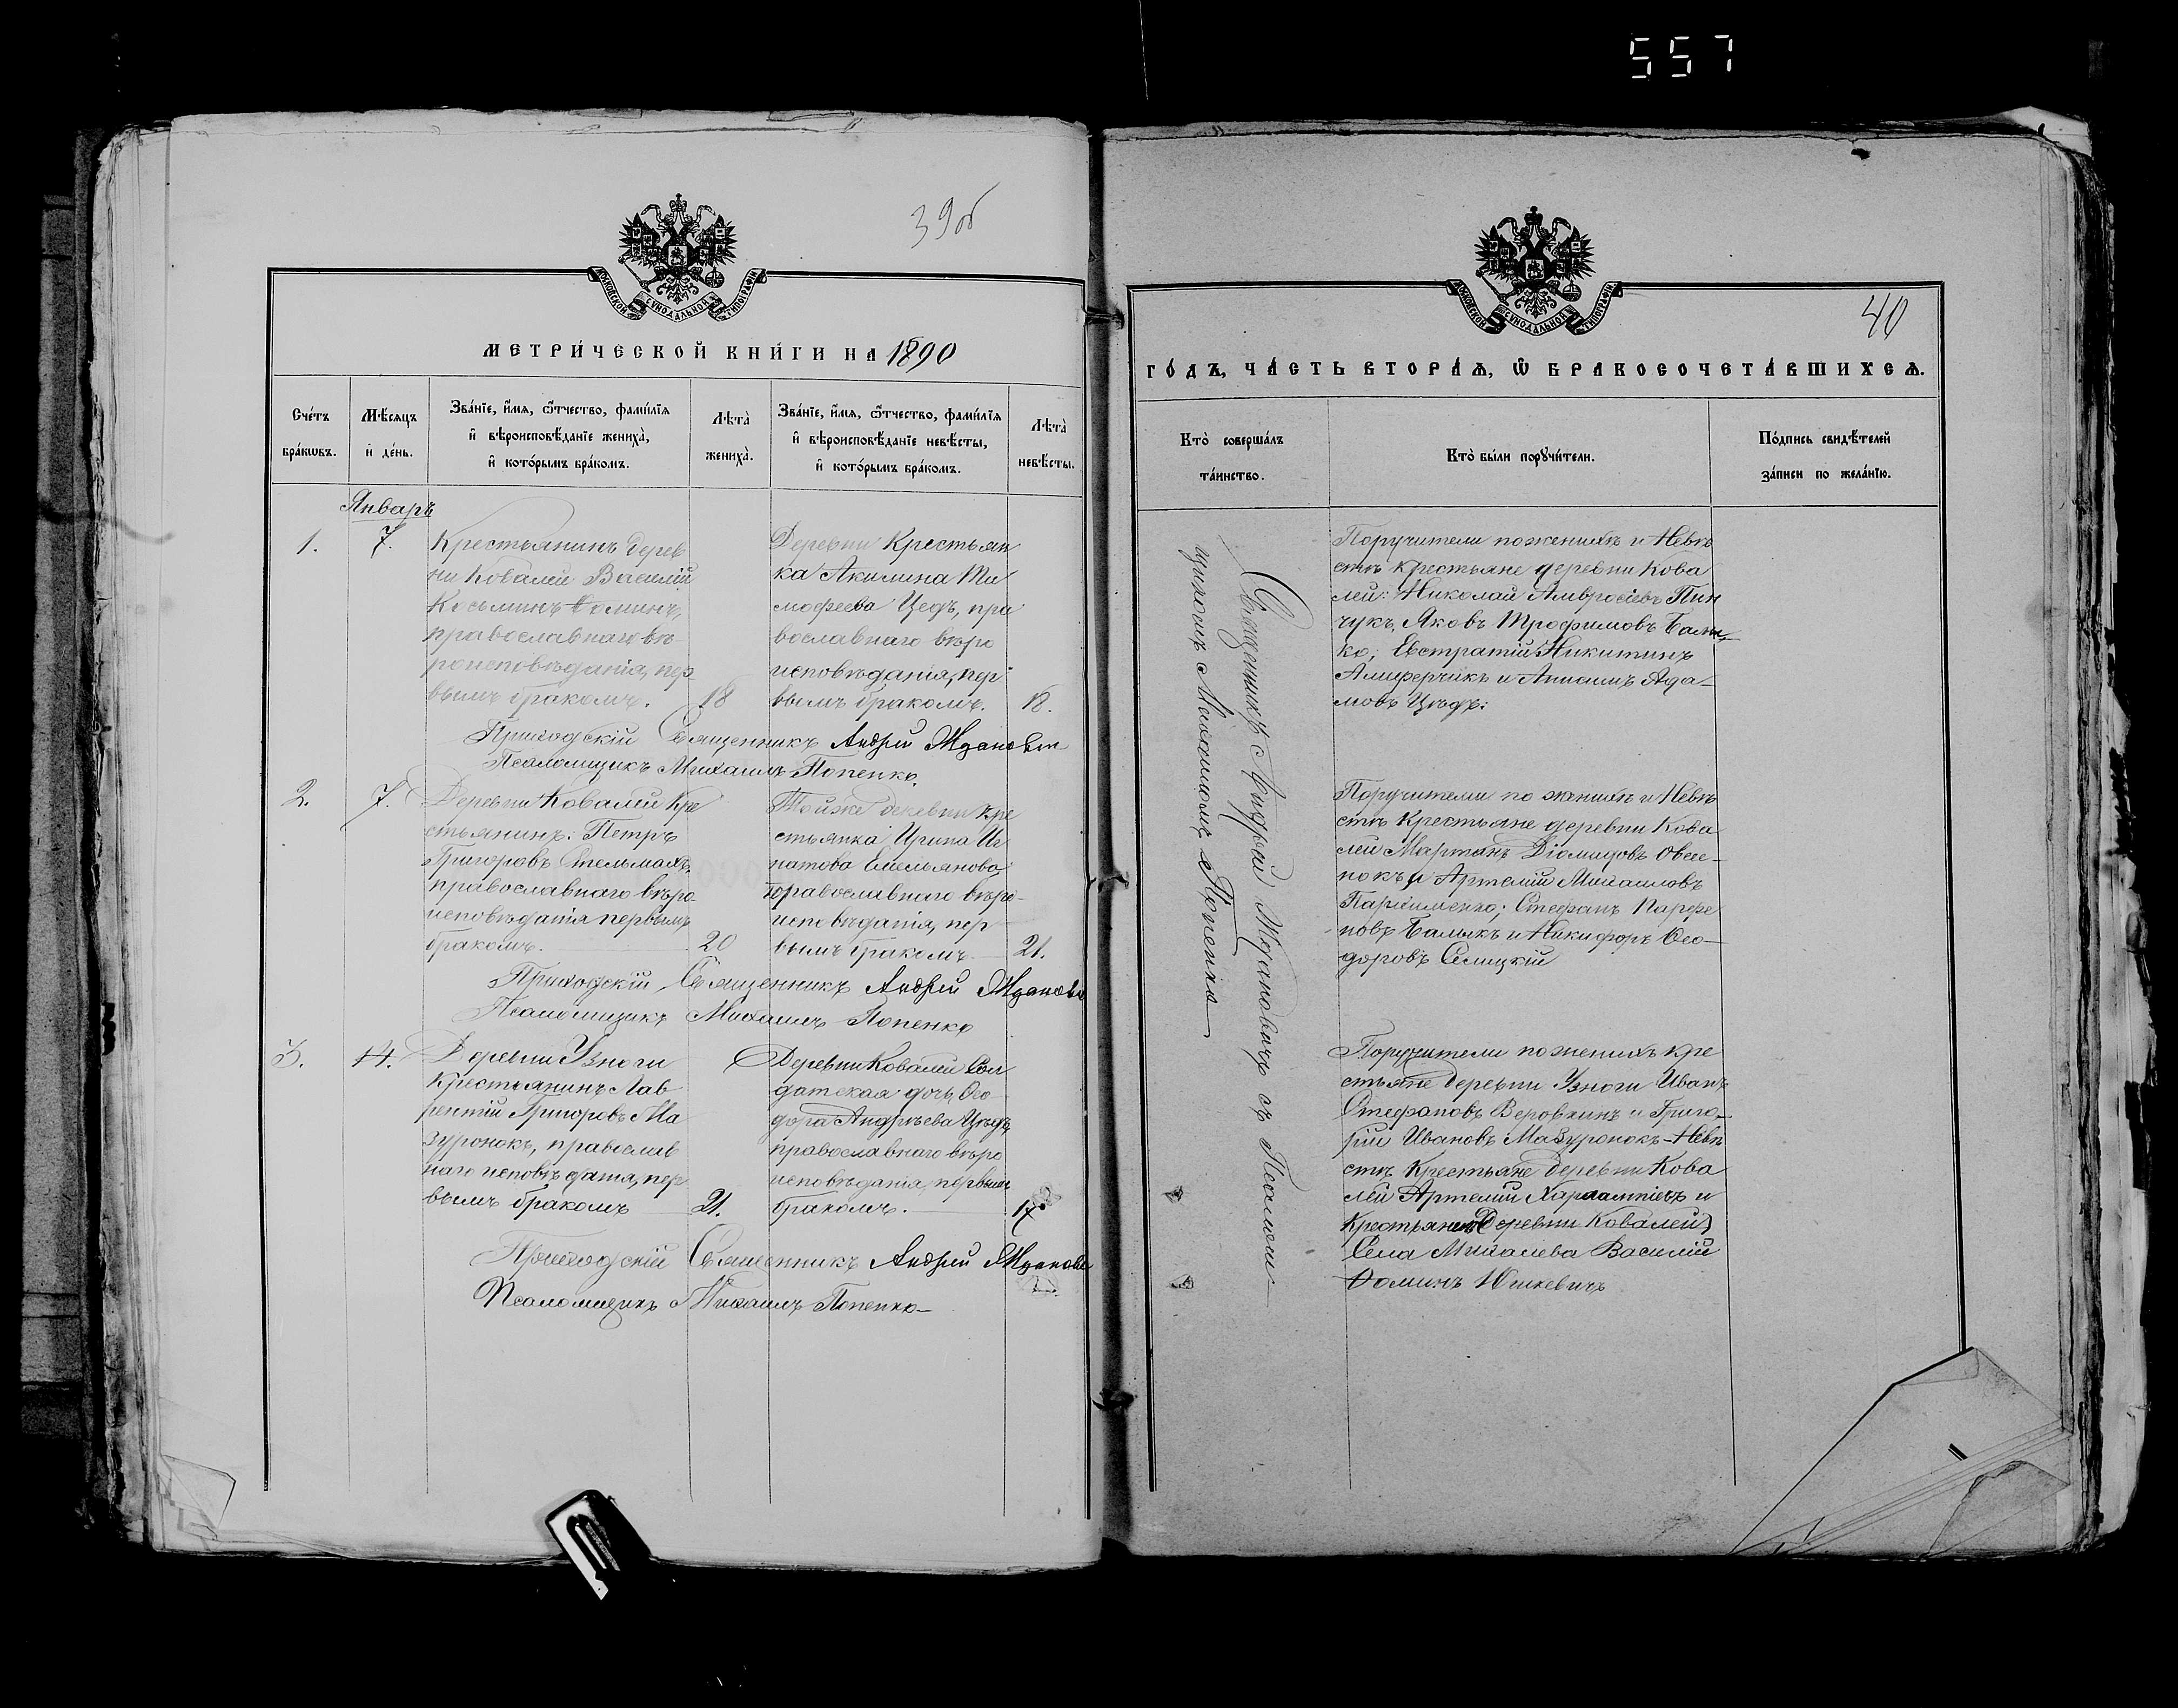 557
39об
МОСКОВСКОЙ СѴНОДАЛЬНОЙ ТИПОГРАФІИ
МЕТРИ́ЧЕСКОЙ КНИ́ГИ НА 1890
Сче́тъ бра́кѡвъ.
Мѣ́сяцъ и҆ де́нь.
Зва́нїе, и҆́мя, ѻ҆́тчество, фами́лїя
и҆ вѣроисповѣ́данїе жениха̀,
и҆ кото́рымъ бра́комъ.
Лѣта̀ жениха̀.
Зва́нїе, и҆́мя, ѻ҆́тчество, фами́лїя
и҆ вѣроисповѣ́данїе невѣ́сты,
и҆ кото́рымъ бра́комъ.
Лѣта̀ невѣ́сты.
Январь
1.
7.
Крестьянинъ дерев
ни Ковалей Василій
Косьминъ Ѳоминъ,
православнаго вѣ
роисповѣданія, пер
вымъ бракомъ.
18
Деревни Крестьян
ка Акилина Ти
мофеева Цедъ, пра
вославнаго вѣро
исповѣданія, пер
вымъ бракомъ.
18.
Приходскій Священникъ Андрей Ждановичъ
Псаломщикъ Михаилъ Попенко.
2.
7.
Деревни Ковалей Кре
стьянинъ: Петръ
Григоровъ Стельмахъ,
православнаго вѣро
исповѣданія первымъ
бракомъ.
20
Тойже деревни Кре
стьянка Ирина Иг
натова Емельянова
православнаго вѣро-
исповѣданія, пер
вымъ бракомъ.
21.
Приходскій Священникъ Андрей Жданови
Псаломщикъ Михаилъ Попенко
3.
14.
Деревни Узноги
Крестьянинъ Лав
рентій Григоровъ Ма
зуронокъ, православ
наго исповѣданія, пер
вымъ бракомъ
21.
Деревни Ковалей Сол
датская дочь Ѳео
дора Андрѣева Цѣдъ,
православнаго вѣро
исповѣданія, первымъ
бракомъ.
17
Приходскій Священникъ Андрей Жданови
Псаломщикъ Михаилъ Попенко
МОСКОВСКОЙ СѴНОДАЛЬНОЙ ТИПОГРАФІИ
40
ГО́ДЪ, ЧА́СТЬ ВТОРА́Ѧ, Ѽ БРАКОСОЧЕТА́ВШИХСѦ.
Кто̀ соверша́лъ
та́инство.
Кто̀ бы́ли порꙋчи́тели.
По́дпись свидѣ́телей
за́писи по жела́нїю.
Священникъ Андрей Ждановичъ съ Псалом
щикомъ Михаиломъ Попенко
Поручители по женихѣ и Невѣ
стѣ крестьяне деревни Кова
лей: Николай Амвросіевъ Пин
чукъ, Яковъ Трофимовъ
ко; Евстратій Никитинъ
Алиферчикъ и Ада
мовъ Цѣдъ:
Поручители по женихѣ и Невѣ
стѣ Крестьяне деревни Кова
лей Мартинъ Діомидовъ Овсе
нокъ и Артемій Михаиловъ
Пархименко; Стефанъ Парфе
новъ Балыкъ и Никифоръ Ѳео
доровъ Силицкій
Поручители по женихѣ кре
стьяне деревни Узноги Иванъ
Стефановъ Веровкинъ и Григо
рій Ивановъ Мазуронокъ - Невѣ
стѣ Крестьяне деревни Кова
лей Артемій Харлампіевъ и
Крестьянинъ (Деревни Ковалей)
Села Михалева Василій
Ѳоминъ Юшкевичъ